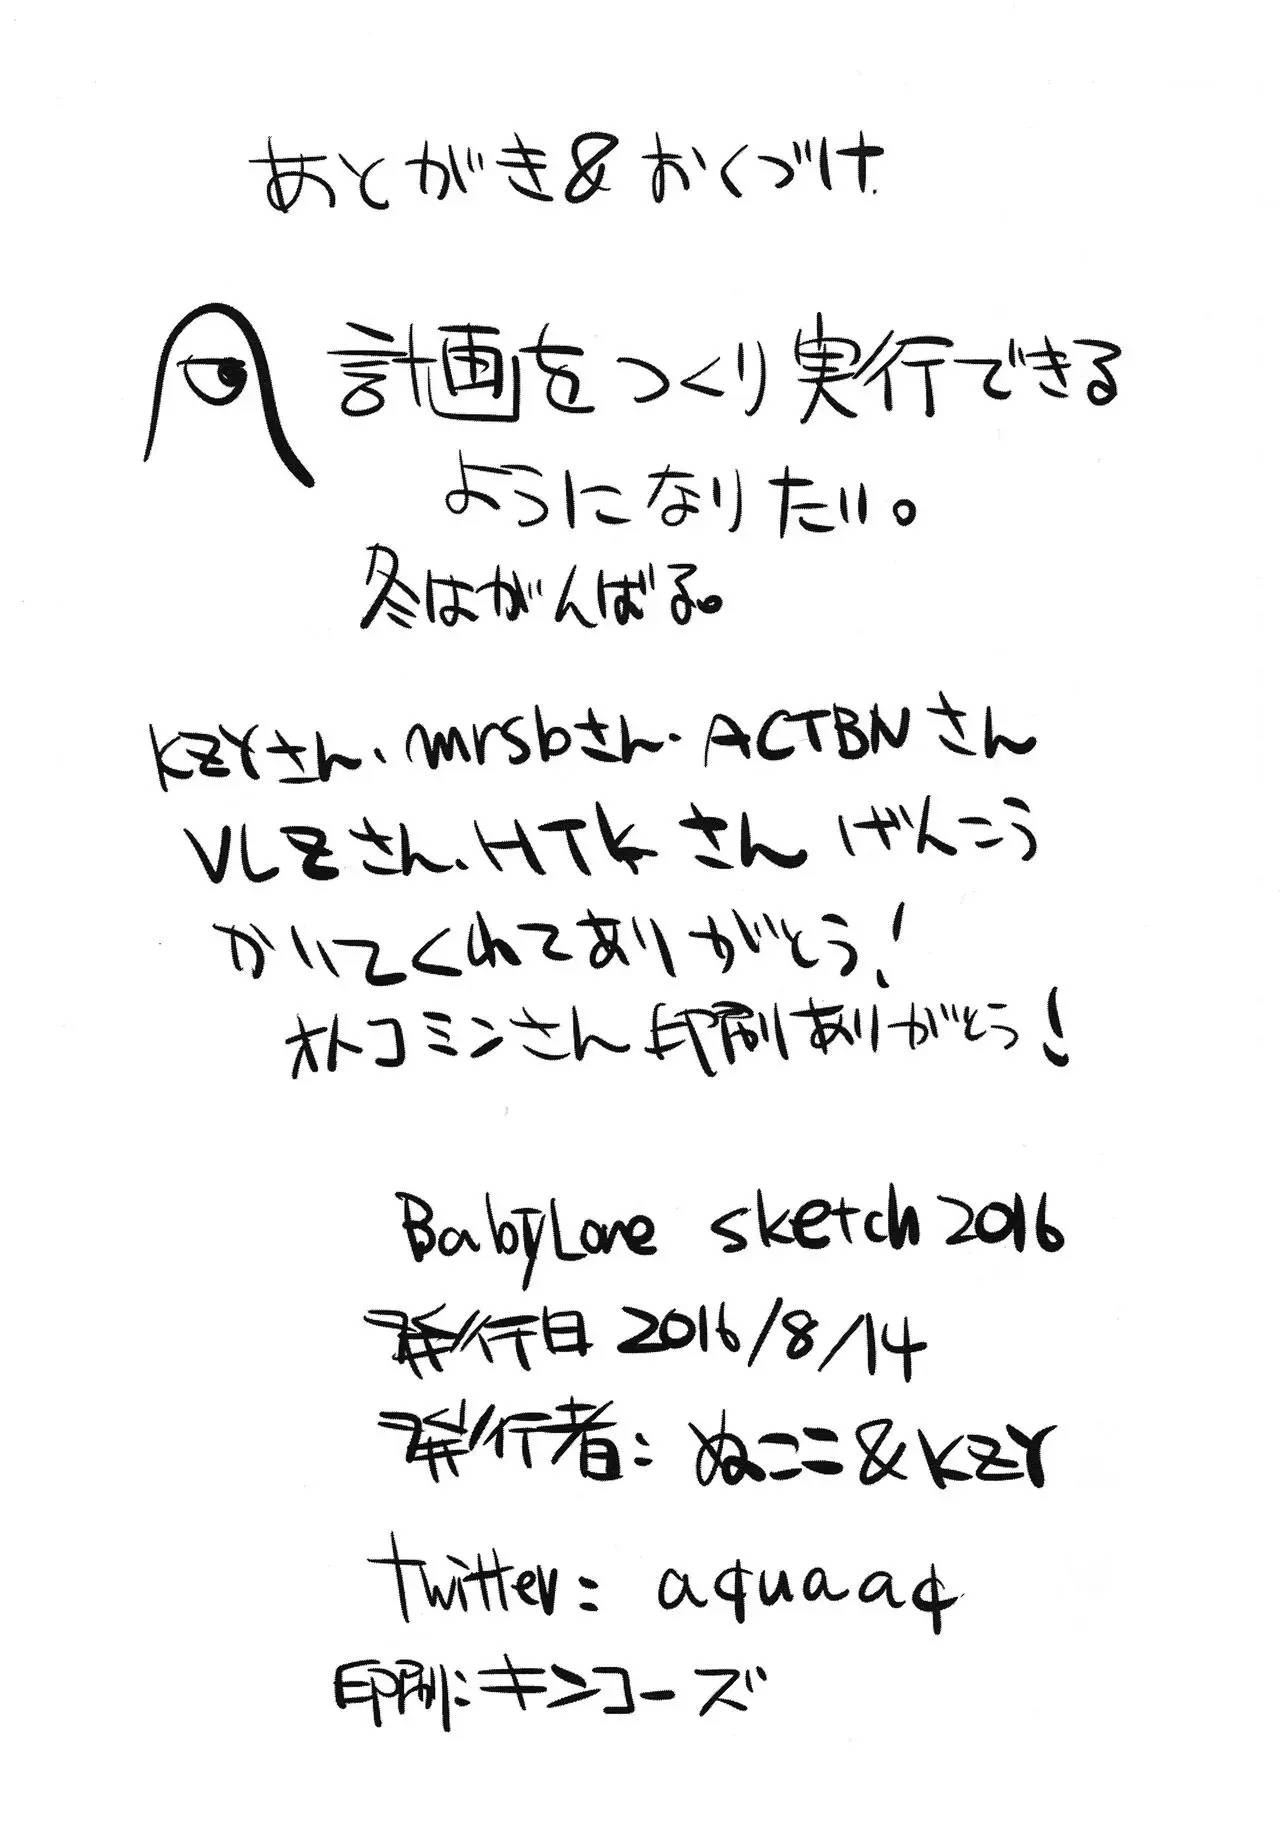 あとがき&おくづけ
計画をつくり実行できる
ようになりたい。
冬はがんばる。
KZYさん、mrsbさん、ACTBNさん
VLZさん、HTKさん げんこう
かいてくれてありがとう!
オトコミンさん印刷ありがとう!
BabyLone sketch 2016
発行日 2016/8/14
発行者:ぬここ&KZY
twitter: aquaaq
印刷:キンコーズ